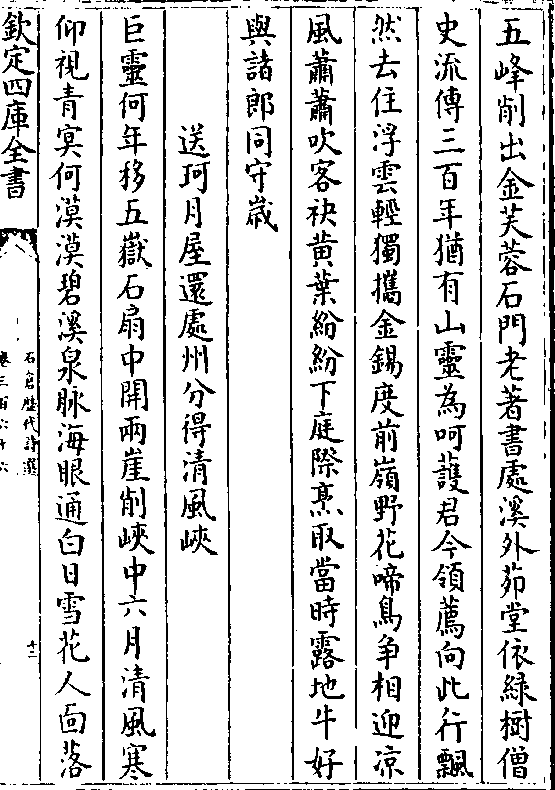 五峰削出金芙蓉石門老著書處溪外茆堂依緑樹僧
史流傳三百年猶有山靈為呵護君今領薦向此行飄
然去住浮雲輕獨攜金錫度前嶺野花啼鳥争相迎凉
風蕭蕭吹客袂黄葉紛紛下庭際烹取當時露地牛好
與諸郎同守歳
送珂月屋還處州分得清風峽
巨靈何年移五嶽石扇中開兩崖削峽中六月清風寒
仰視青㝠何漠漠碧溪泉脉海眼通白日雪花人面落
欽定四庫全書
石倉歴代詩選
卷三百六十六
十二